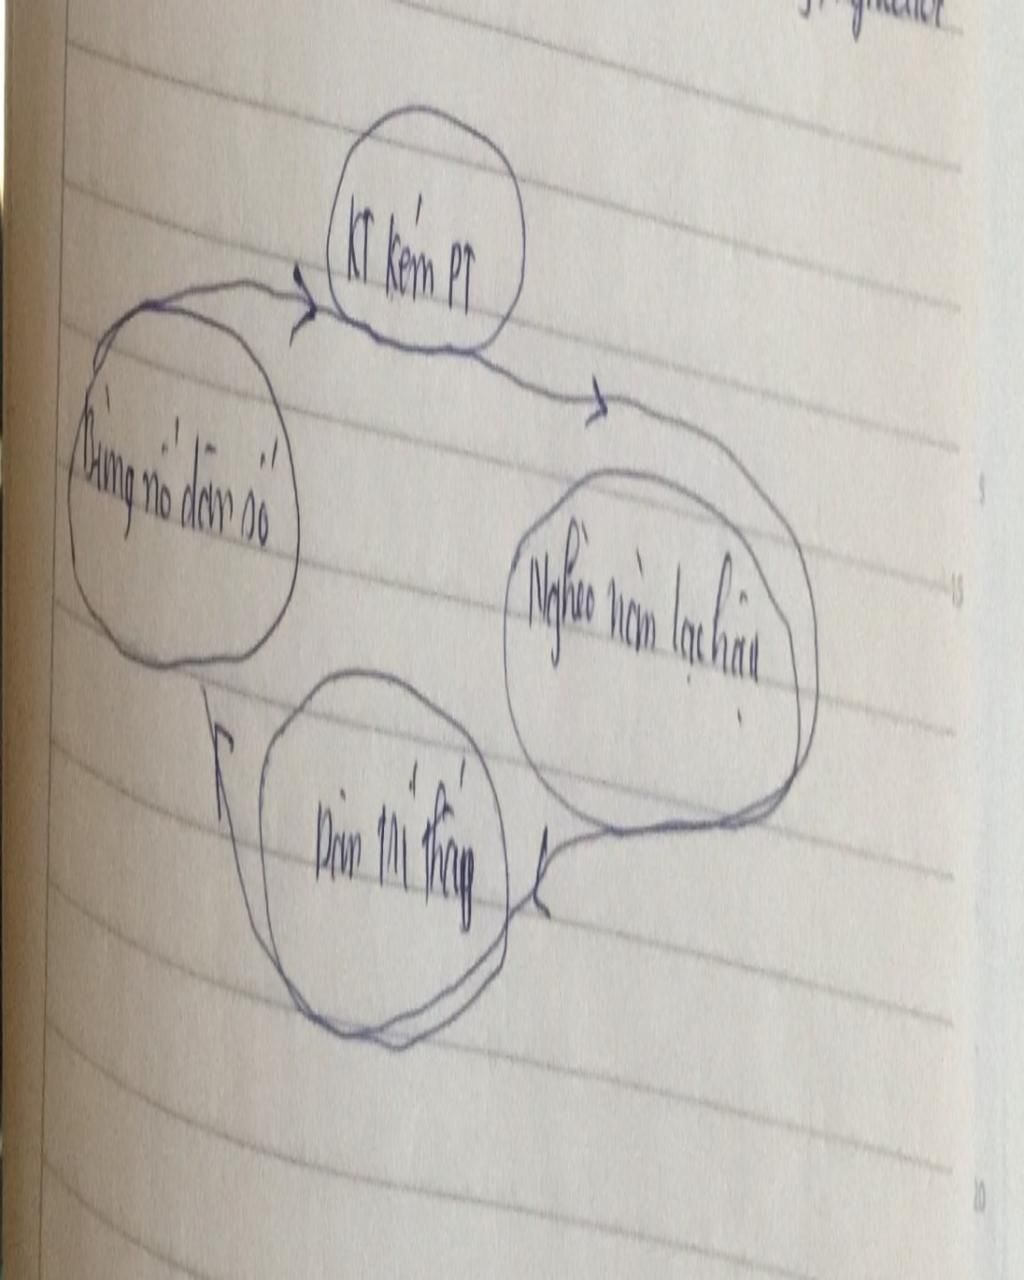 KT kém PT
Bùng nổ dân số
Nghèo nàn lạc hậu
Dân trí thấp